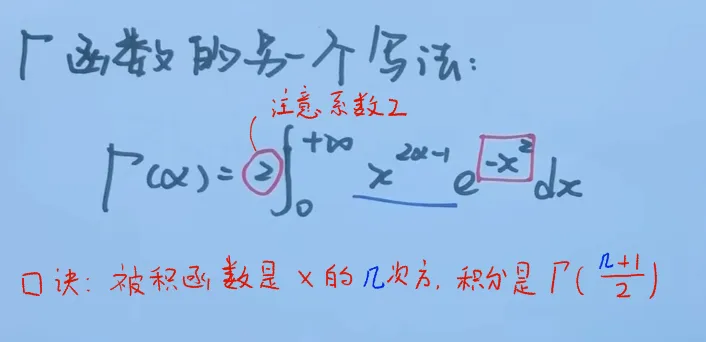 Γ函数的另一个写法:
注意系数2
Γ(α)=2∫₀^{+∞} x^{2α-1} e^{-x^2} dx
口诀: 被积函数是 x 的几次方, 积分是 Γ(\frac{几+1}{2})